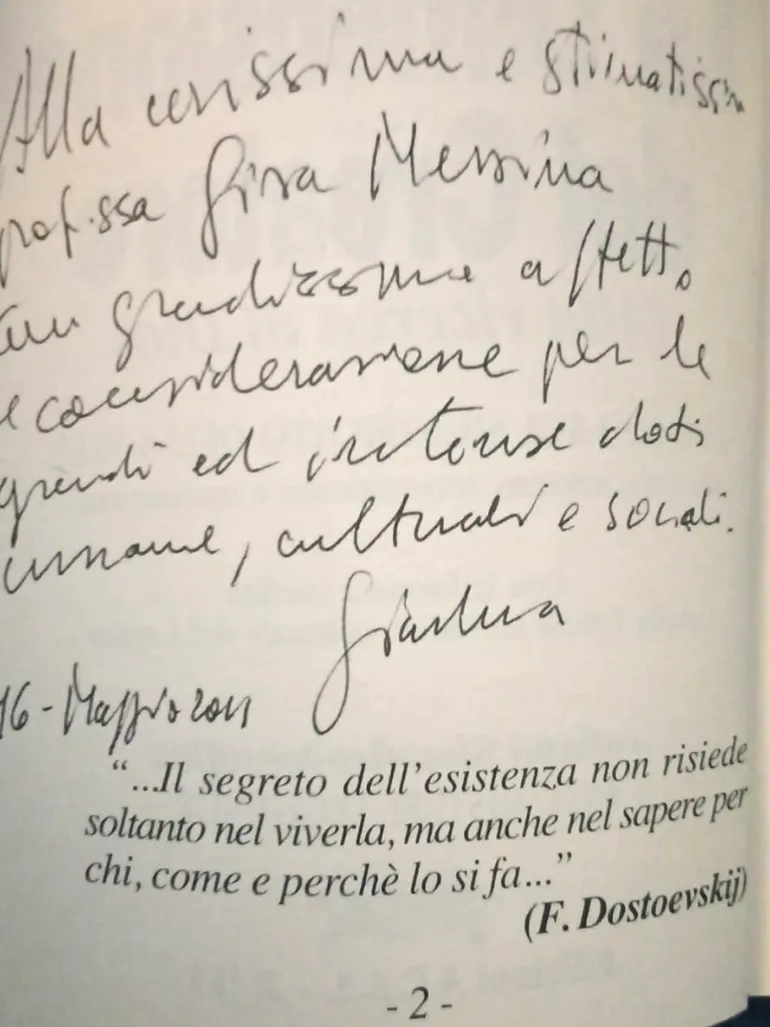 Alla carissima e stimatissima
prof.ssa Giusa Messina
con grandissimo affetto
e considerazione per le
grandi ed intense doti
umane, culturali e sociali.
Gianluca
16 - Maggio 2011
“...Il segreto dell’esistenza non risiede
soltanto nel viverla, ma anche nel sapere per
chi, come e perchè lo si fa...”
(F. Dostoevskij)
- 2 -